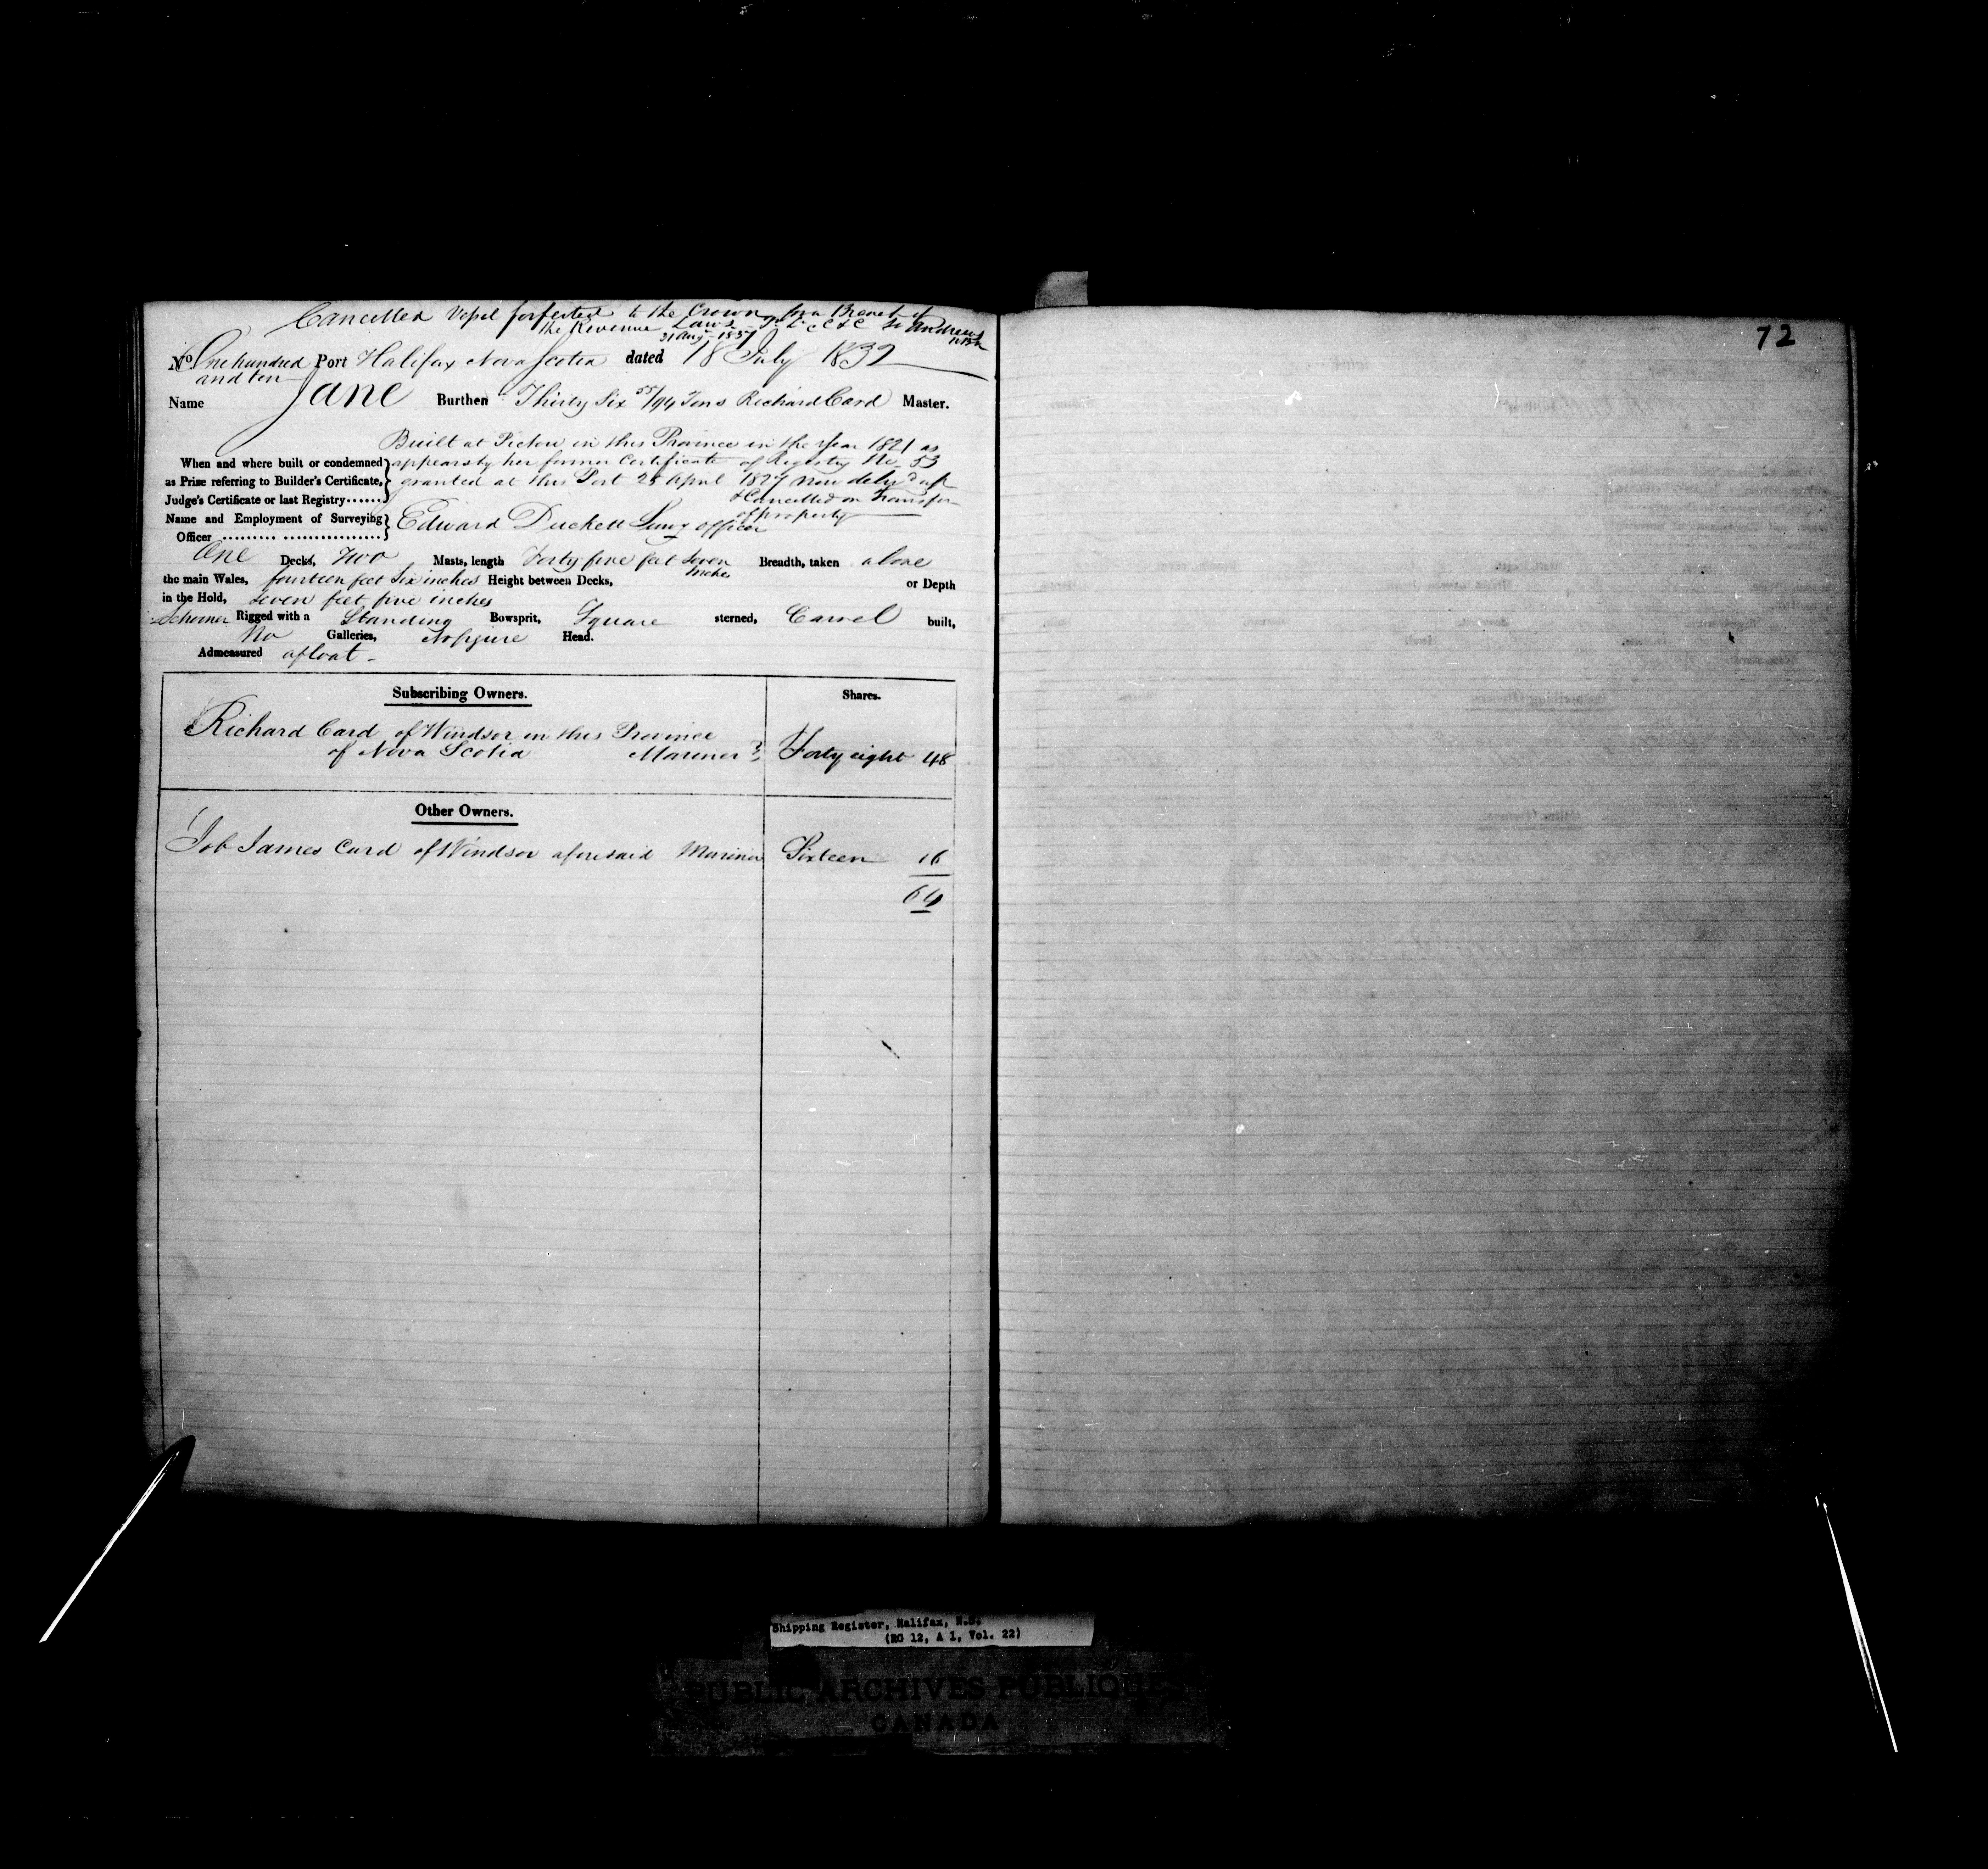 Cancelled Vessel forfeited to the Crown for a Breach of
the Revenue Laws St Andrews
31 Augt 1837 NB
72
No. One hundred Port Halifax Nova Scotia dated 18 July 1832
and ten
Name Jane Burthen Thirty Six 55/94 Tons Richard Card Master.
Built at Pictou in this Province in the Year 1821 as
When and where built or condemned appears by her former Certificate of Registry No. 53
as Prize referring to Builder's Certificate, granted at this Port 25 April 1827 now deld up
Judge's Certificate or last Registry & Cancelled on Transfer
of property
Name and Employment of Surveying Edward Duckett Survg officer
Officer
One Decks, Two Masts, length Forty five feet Seven Breadth, taken above
inches
the main Wales, fourteen feet Six inches Height between Decks, or Depth
in the Hold, Seven feet five inches
Schooner Rigged with a Standing Bowsprit, Square sterned, Carvel built,
No Galleries, No figure Head.
Admeasured afloat
Subscribing Owners. Shares.
Richard Card of Windsor in this Province
of Nova Scotia Mariner Forty eight 48
Other Owners.
Job James Card of Windsor aforesaid Mariner Sixteen 16
64
Shipping Register, Halifax, N.S.
(RG 12, A 1, Vol. 22)
PUBLIC ARCHIVES PUBLIQUES
CANADA